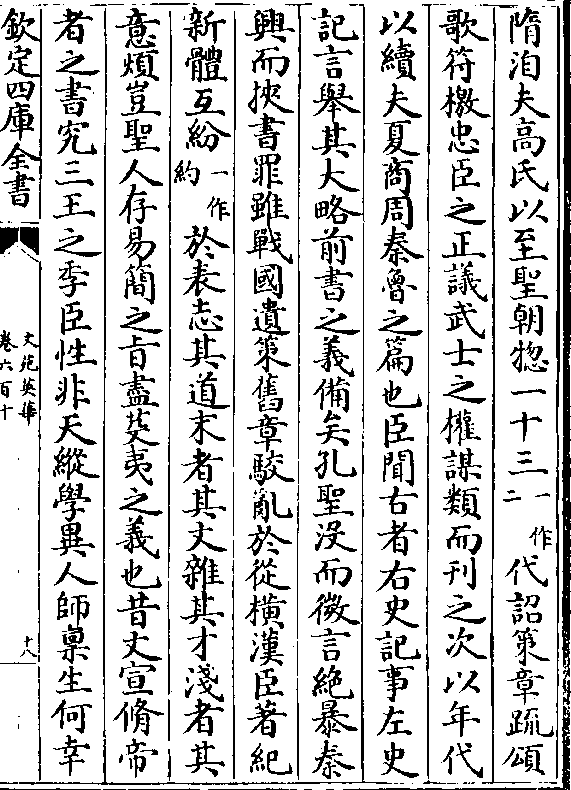 隋洎夫高氏以至聖朝惣一十三一作二代詔策章疏頌
歌符檄忠臣之正議武士之權謀類而刊之次以年代
以續夫夏商周秦魯之篇也臣聞右者右史記事左史
記言舉其大略前書之義備矣孔聖没而微言絶暴秦
興而挾書罪雖戰國遺策舊章駮亂於從横漢臣著紀
新體互紛一作約於表志其道末者其文雜其才淺者其
意煩豈聖人存易簡之旨盡芟夷之義也昔文宣脩帝
者之書究三王之季臣性非天縱學異人師稟生何幸
欽定四庫全書
文苑英華
卷六百十
十八